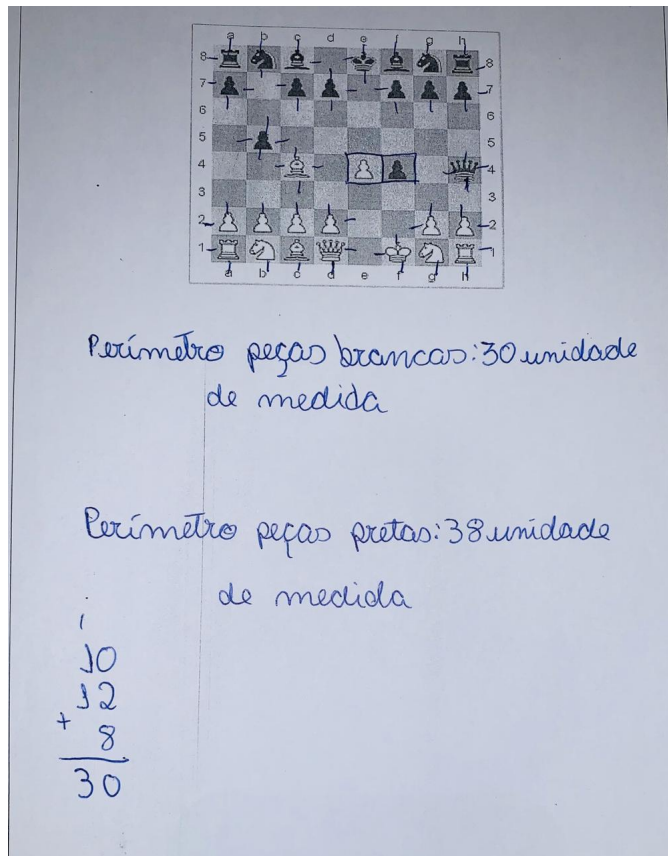 a b c d e f g h
8 8
7 7
6 6
5 5
4 4
3 3
2 2
1 1
a b c d e f g h
Perímetro peças brancas: 30 unidade
de medida
Perímetro peças pretas: 38 unidade
de medida
1
10
12
+ 8
30